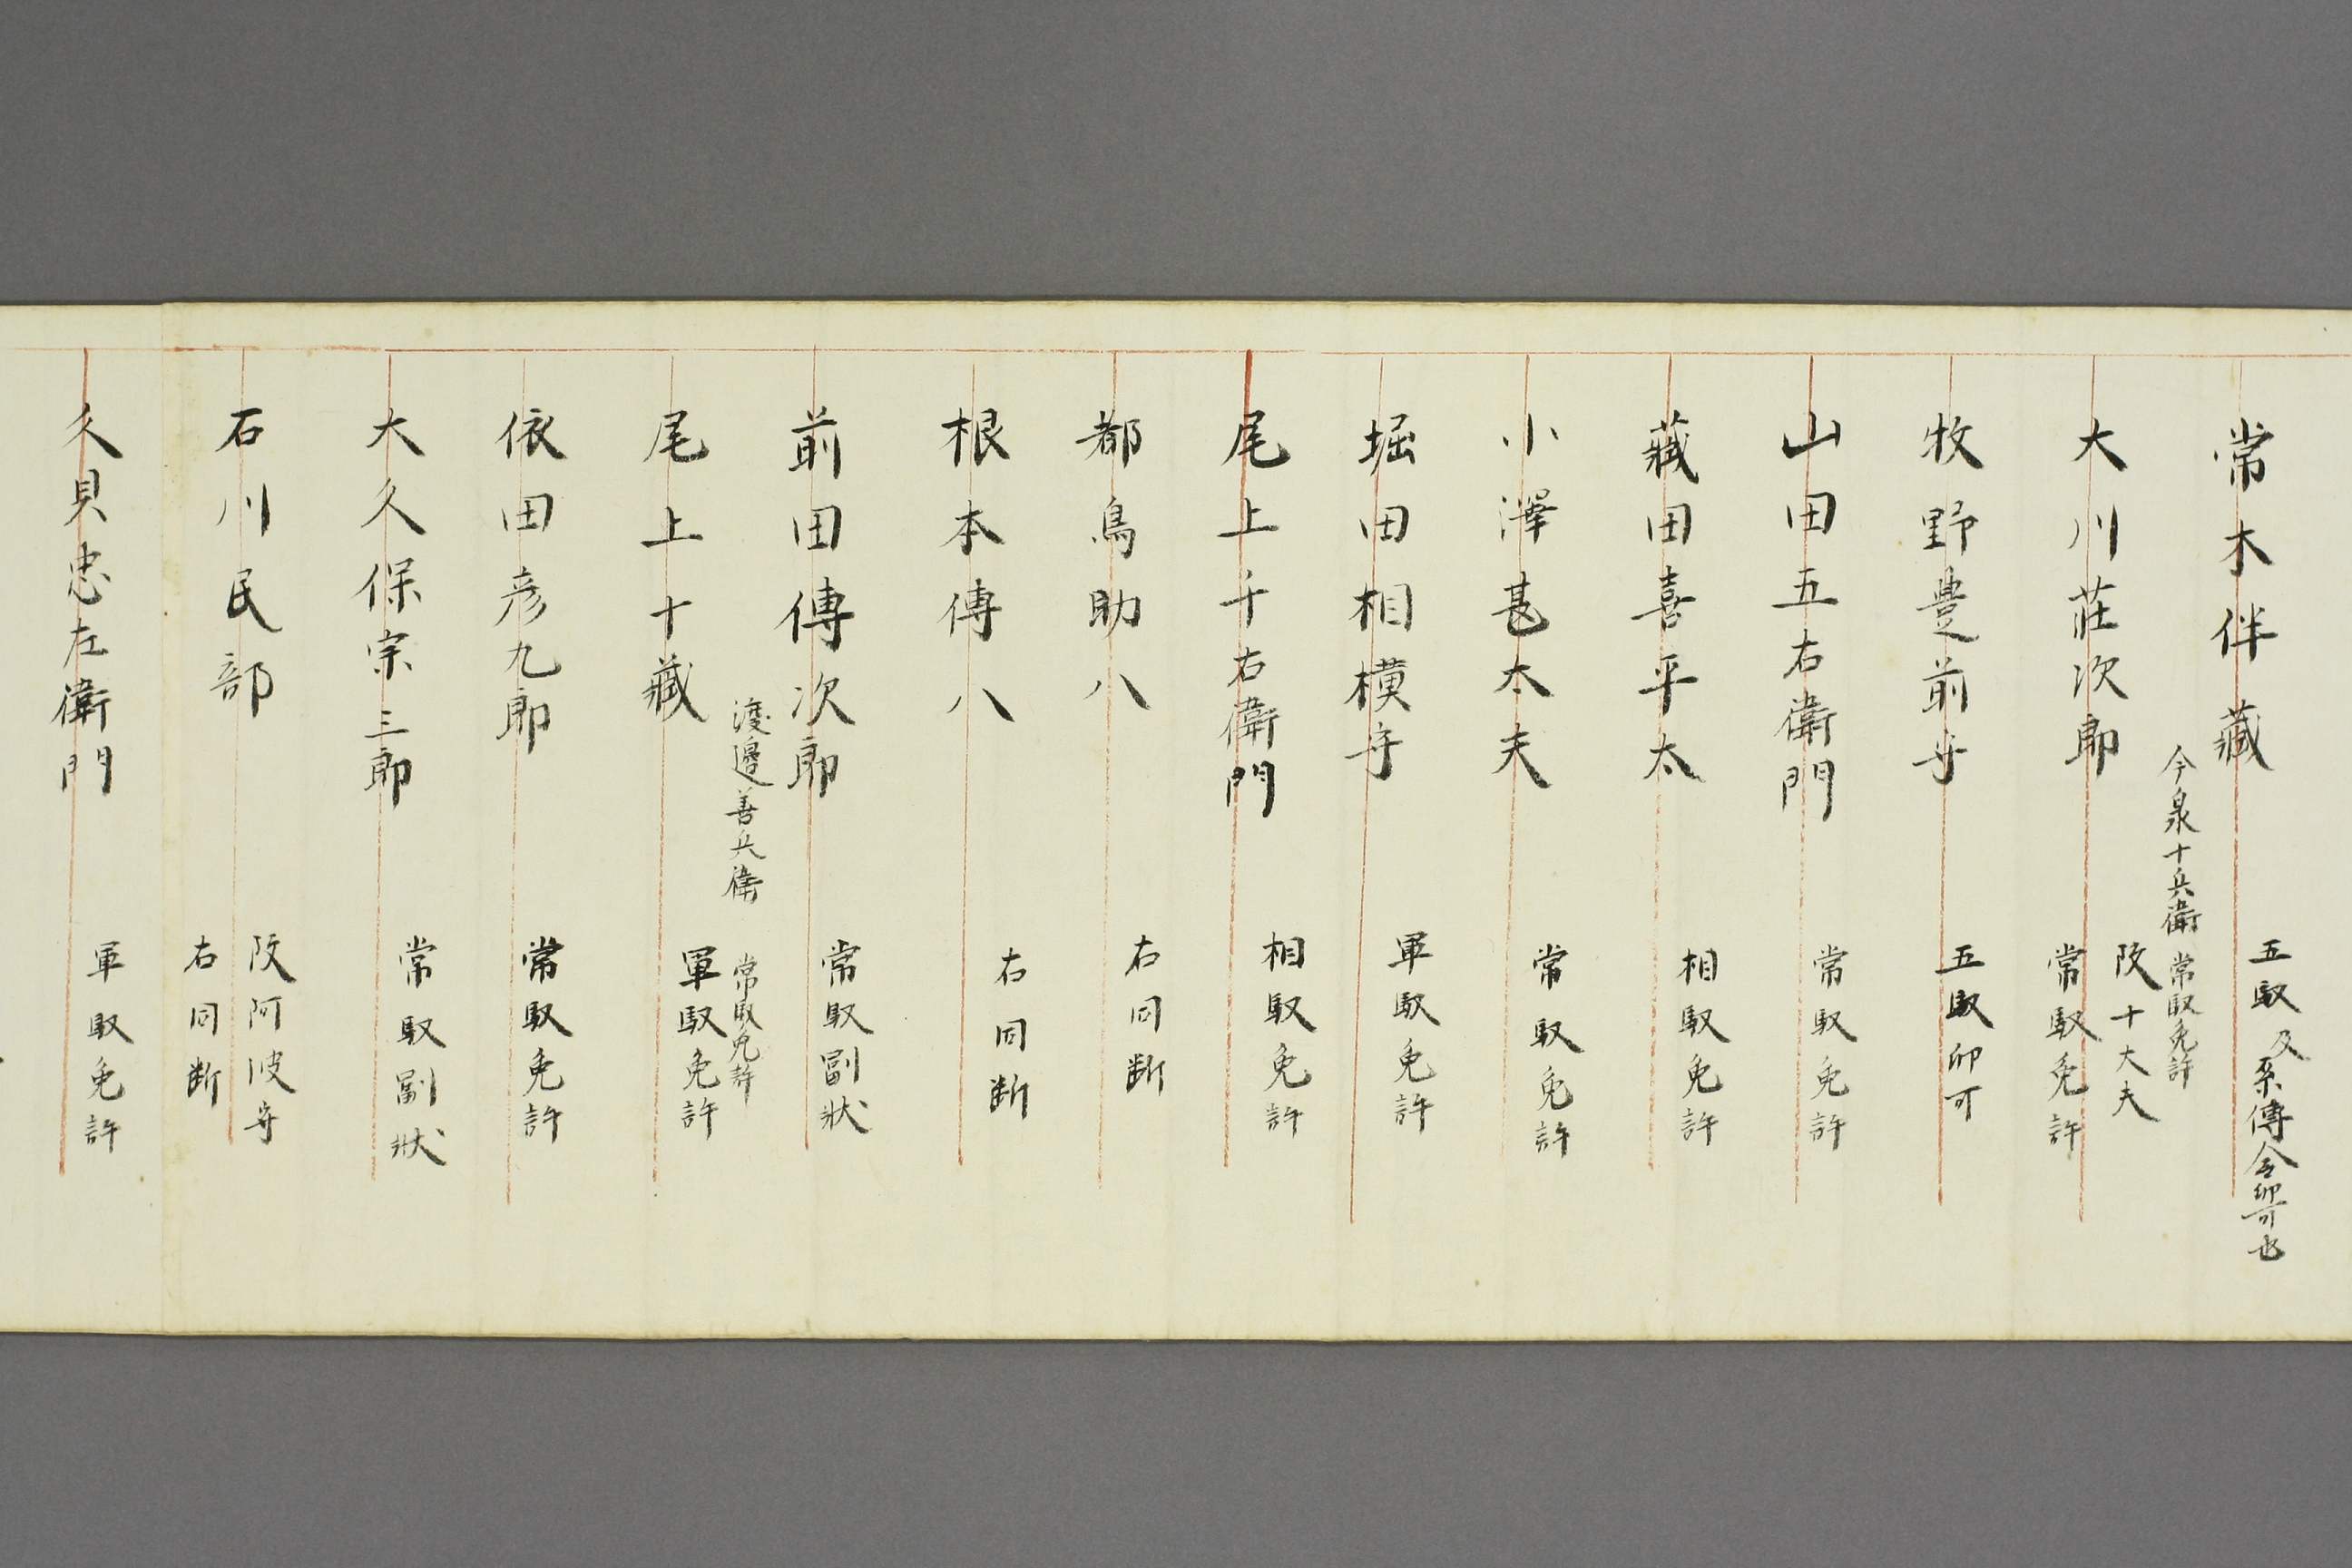 常木伴藏
五馭及系傳全卯可也
今泉十兵衛 常馭免許
大川莊次郎
改十大夫
常馭免許
牧野豊前守
五馭卯可
山田五右衛門
常馭免許
藏田喜平太
相馭免許
小澤甚太夫
常馭免許
堀田相模守
軍馭免許
尾上千右衛門
相馭免許
都鳥助八
右同断
根本傳八
右同断
前田傳次郎
常馭副狀
渡邉善兵衛 常馭免許
尾上十藏
軍馭免許
依田彦九郎
常馭免許
大久保宗三郎
常馭副狀
石川民部
改阿波守
右同断
久貝忠左衛門
軍馭免許